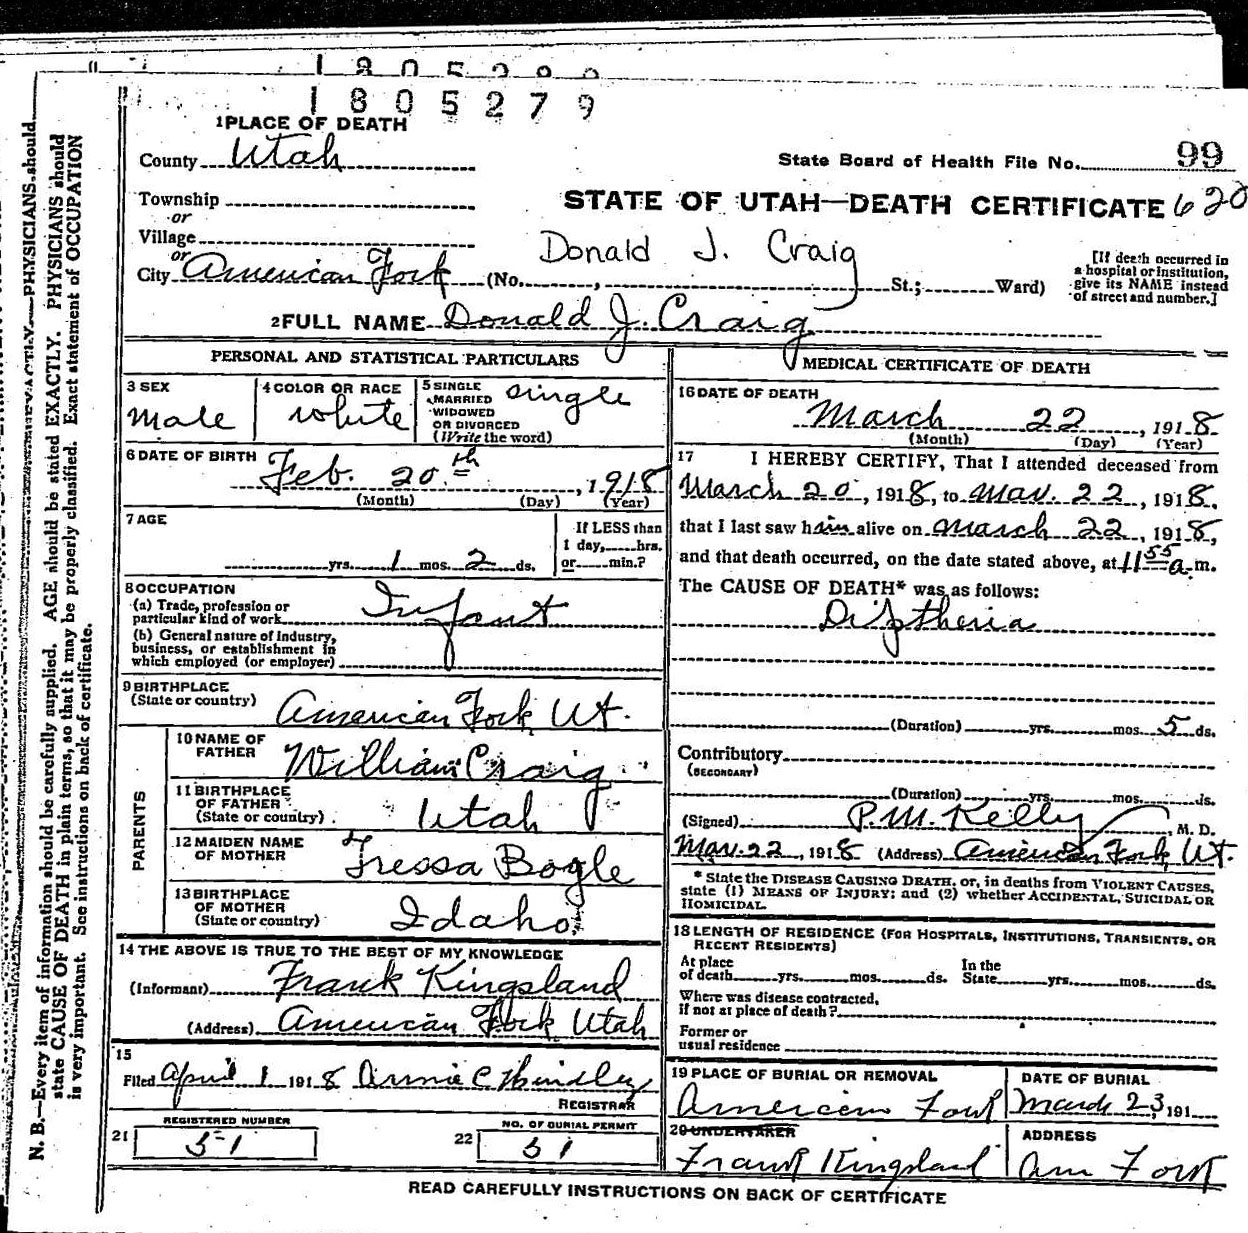 1805279
1 PLACE OF DEATH
County Utah
State Board of Health File No. 99
Township
or
STATE OF UTAH—DEATH CERTIFICATE 620
Village
or
Donald J. Craig
City American Fork (No. , St.; Ward)
[If death occurred in
a hospital or institution,
give its NAME instead
of street and number.]
2 FULL NAME Donald J. Craig
PERSONAL AND STATISTICAL PARTICULARS
3 SEX
Male
4 COLOR OR RACE
White
5 SINGLE
MARRIED
WIDOWED
OR DIVORCED
(Write the word)
Single
6 DATE OF BIRTH
Feb. 20th, 1918
(Month) (Day) (Year)
7 AGE
yrs. 1 mos. 2 ds.
If LESS than
1 day, hrs.
or min.?
8 OCCUPATION
(a) Trade, profession or
particular kind of work Infant
(b) General nature of industry,
business, or establishment in
which employed (or employer)
9 BIRTHPLACE
(State or country)
American Fork Ut.
PARENTS
10 NAME OF
FATHER
William Craig
11 BIRTHPLACE
OF FATHER
(State or country)
Utah
12 MAIDEN NAME
OF MOTHER
Tressa Bogle
13 BIRTHPLACE
OF MOTHER
(State or country)
Idaho
14 THE ABOVE IS TRUE TO THE BEST OF MY KNOWLEDGE
(Informant) Frank Kingsland
(Address) American Fork Utah
15
Filed April 1 1918 Annie C Hindley
REGISTRAR
REGISTERED NUMBER
21 51
NO. OF BURIAL PERMIT
22 51
MEDICAL CERTIFICATE OF DEATH
16 DATE OF DEATH
March 22, 1918
(Month) (Day) (Year)
17 I HEREBY CERTIFY, That I attended deceased from
March 20, 1918, to Mar. 22, 1918,
that I last saw him alive on March 22, 1918,
and that death occurred, on the date stated above, at 11 55 a.m.
The CAUSE OF DEATH* was as follows:
Diptheria
(Duration) yrs. mos. 5 ds.
Contributory
(SECONDARY)
(Duration) yrs. mos. ds.
(Signed) P.M. Kelly, M. D.
Mar. 22, 1918 (Address) American Fork Ut.
* State the DISEASE CAUSING DEATH, or, in deaths from VIOLENT CAUSES,
state (1) MEANS OF INJURY; and (2) whether ACCIDENTAL, SUICIDAL OR
HOMICIDAL.
18 LENGTH OF RESIDENCE (FOR HOSPITALS, INSTITUTIONS, TRANSIENTS, OR
RECENT RESIDENTS)
At place
of death yrs. mos. ds.
In the
State yrs. mos. ds.
Where was disease contracted,
if not at place of death?
Former or
usual residence
19 PLACE OF BURIAL OR REMOVAL
American Fork
DATE OF BURIAL
March 23, 191
20 UNDERTAKER
Frank Kingsland
ADDRESS
Am Fork
READ CAREFULLY INSTRUCTIONS ON BACK OF CERTIFICATE
N. B.—Every item of information should be carefully supplied. AGE should be stated EXACTLY. PHYSICIANS should
state CAUSE OF DEATH in plain terms, so that it may be properly classified. Exact statement of OCCUPATION
is very important. See instructions on back of certificate.